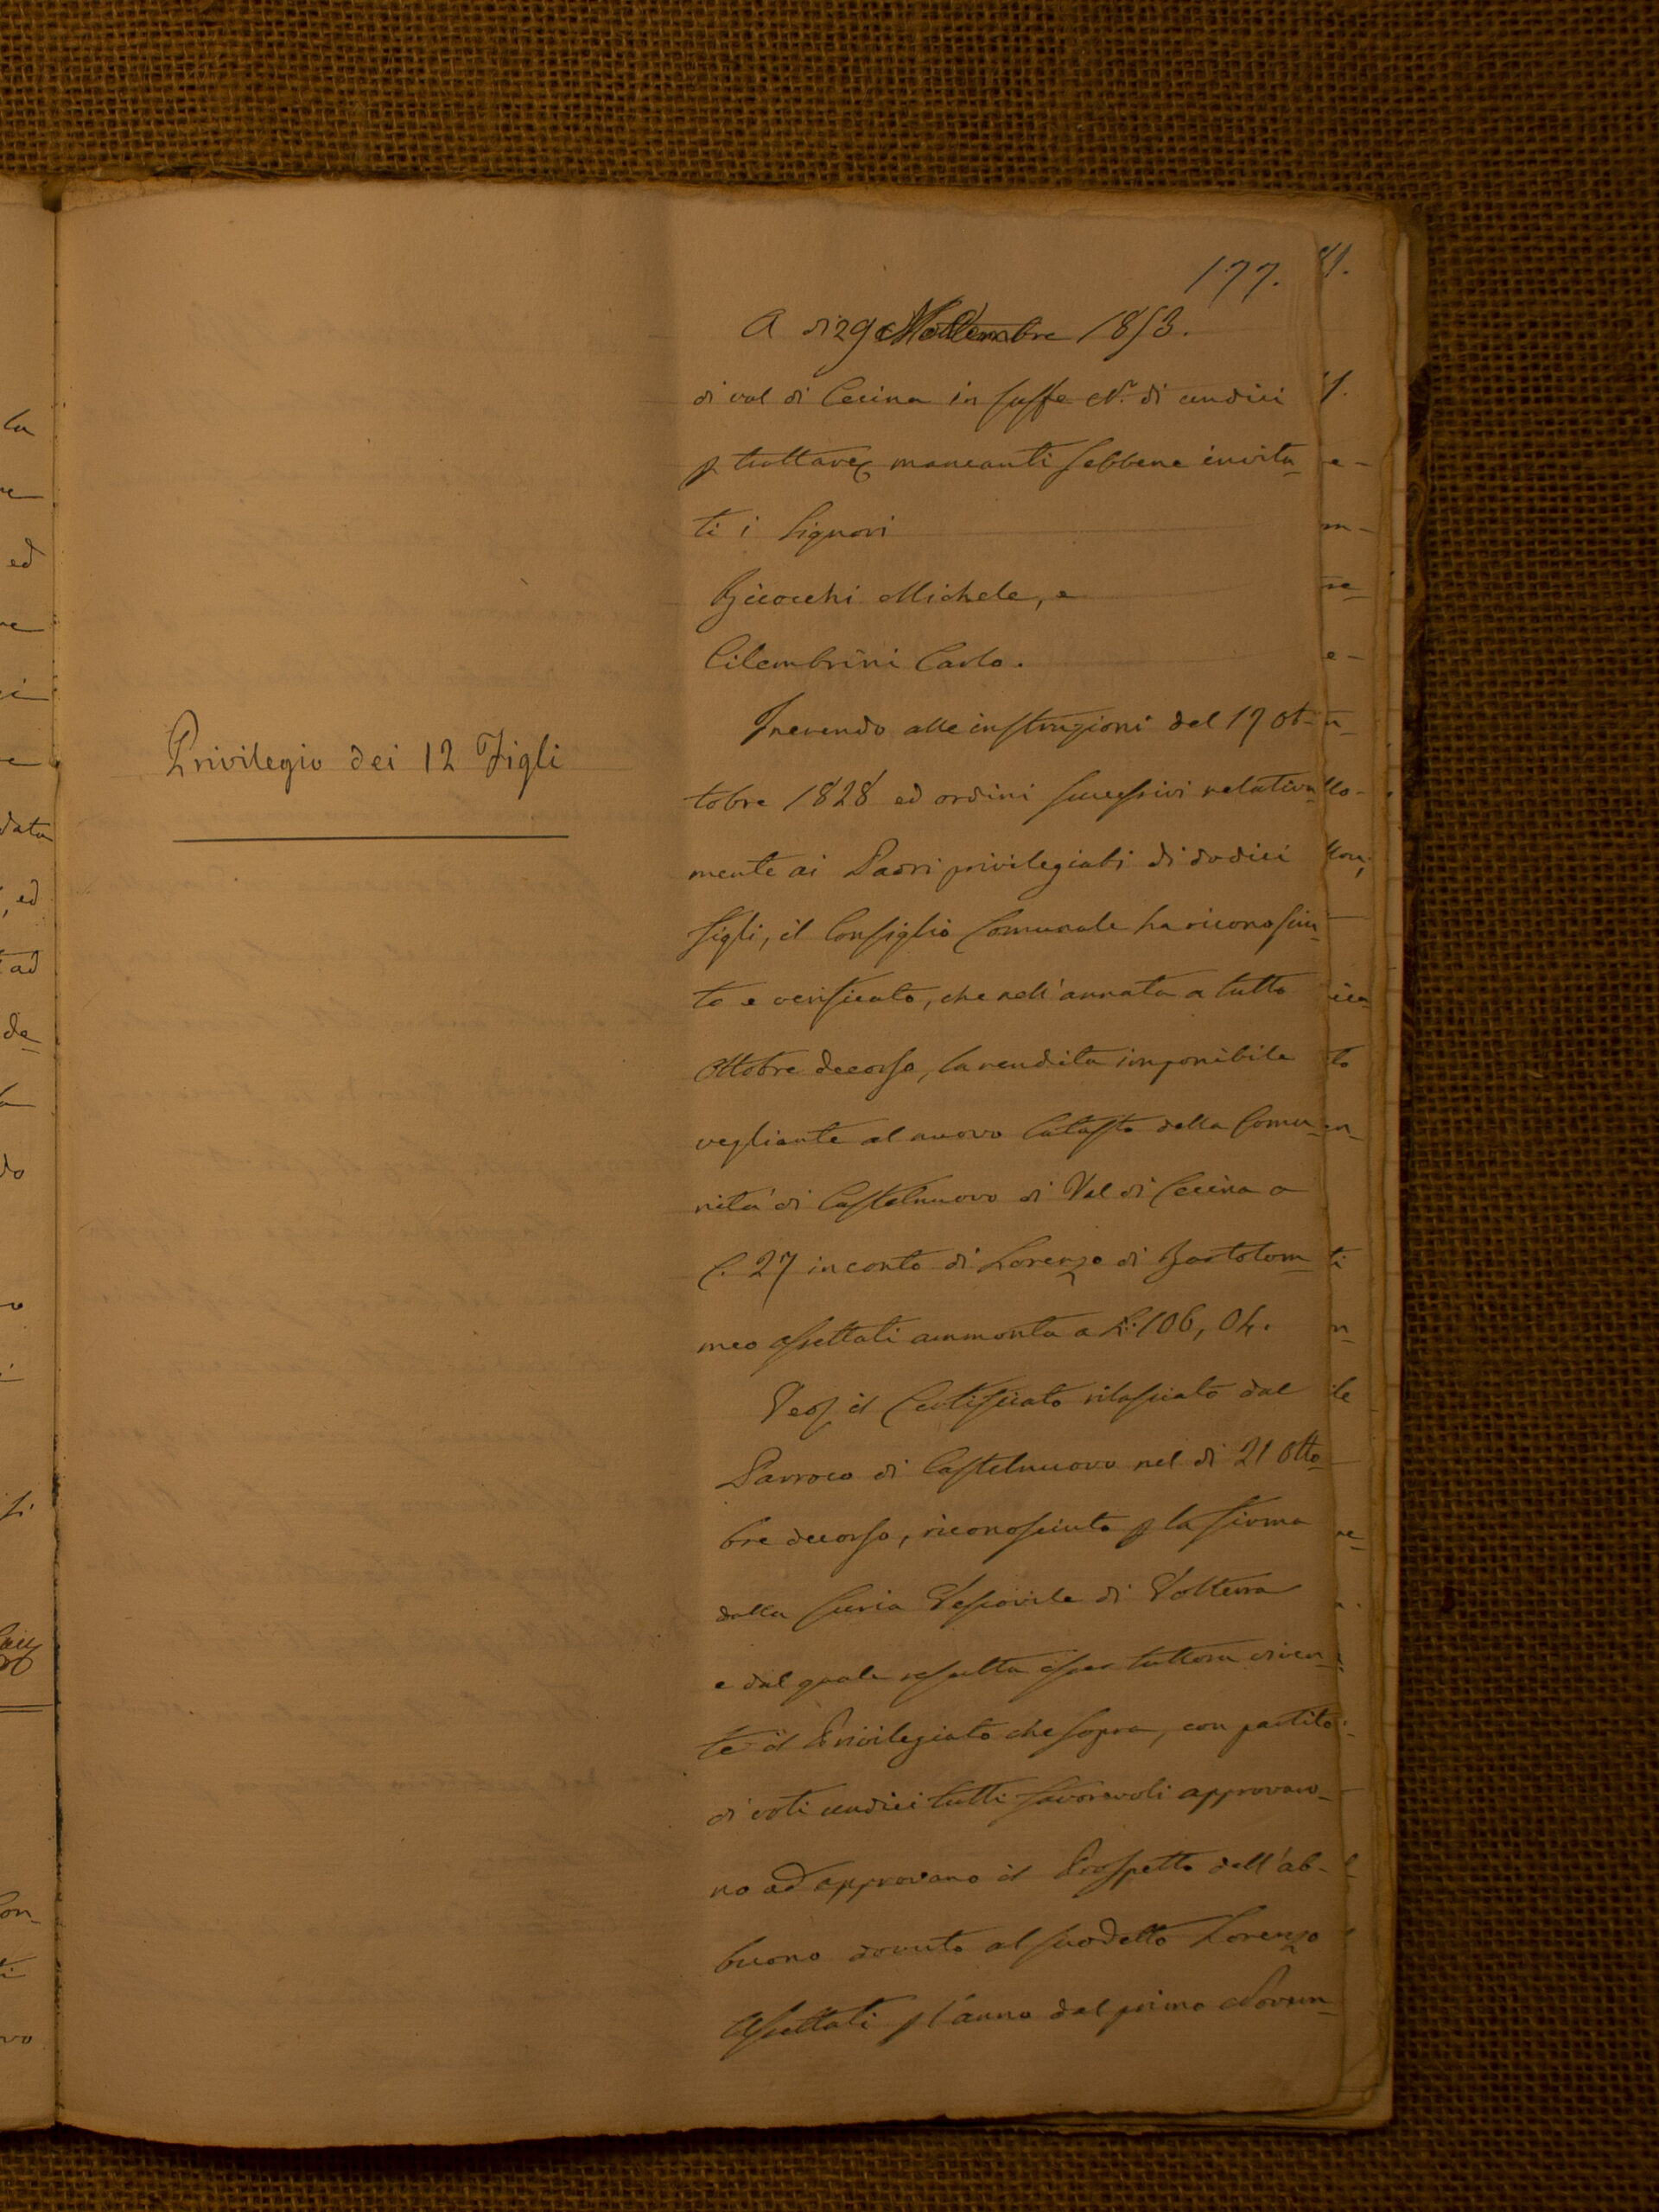 177.
A dì 29 Novembre 1853.
di val di Cecina in suffe N.º di undici
p trattare, mancanti sebbene invita_
ti i Signori
Bicocchi Michele, e
Cilembrini Carlo.
Inerendo alle instruzioni del 17 Ot-
Privilegio dei 12 Figli
tobre 1828 ed ordini successivi relativa_
mente ai Padri privilegiati di dodici
figli, il Consiglio Comunale ha riconosciu_
to e verificato, che nell'annata a tutto
Ottobre decorso, la rendita imponibile
vegliante al nuovo Catasto della Comu_
nità di Castelnuovo di Val di Cecina a
C. 27 in conto di Lorenzo di Bartolom_
meo Aspettati ammonta a L. 106, 04.
il Certificato rilasciato dal
Parroco di Castelnuovo nel dì 21 Otto_
bre decorso, riconosciuto p la firma
dalla Curia Vescovile di Volterra
e dal quale resulta esser tuttora viven_
te il Privilegiato che sopra, con partito
di voti undici tutti favorevoli approvaro_
no ed approvano il Prospetto dell'ab-
buono dovuto al suddetto Lorenzo
Aspettati p l'anno dal primo Novem_